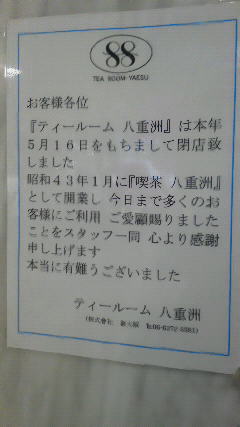 88
TEA ROOM YAESU
お客様各位
『ティールーム 八重洲』は本年
5月16日をもちまして閉店致
しました
昭和43年1月に『喫茶 八重洲』
として開業し 今日まで多くのお
客様にご利用 ご愛顧賜りました
ことをスタッフ一同 心より感謝
申し上げます
本当に有難うございました
ティールーム 八重洲
(株式会社